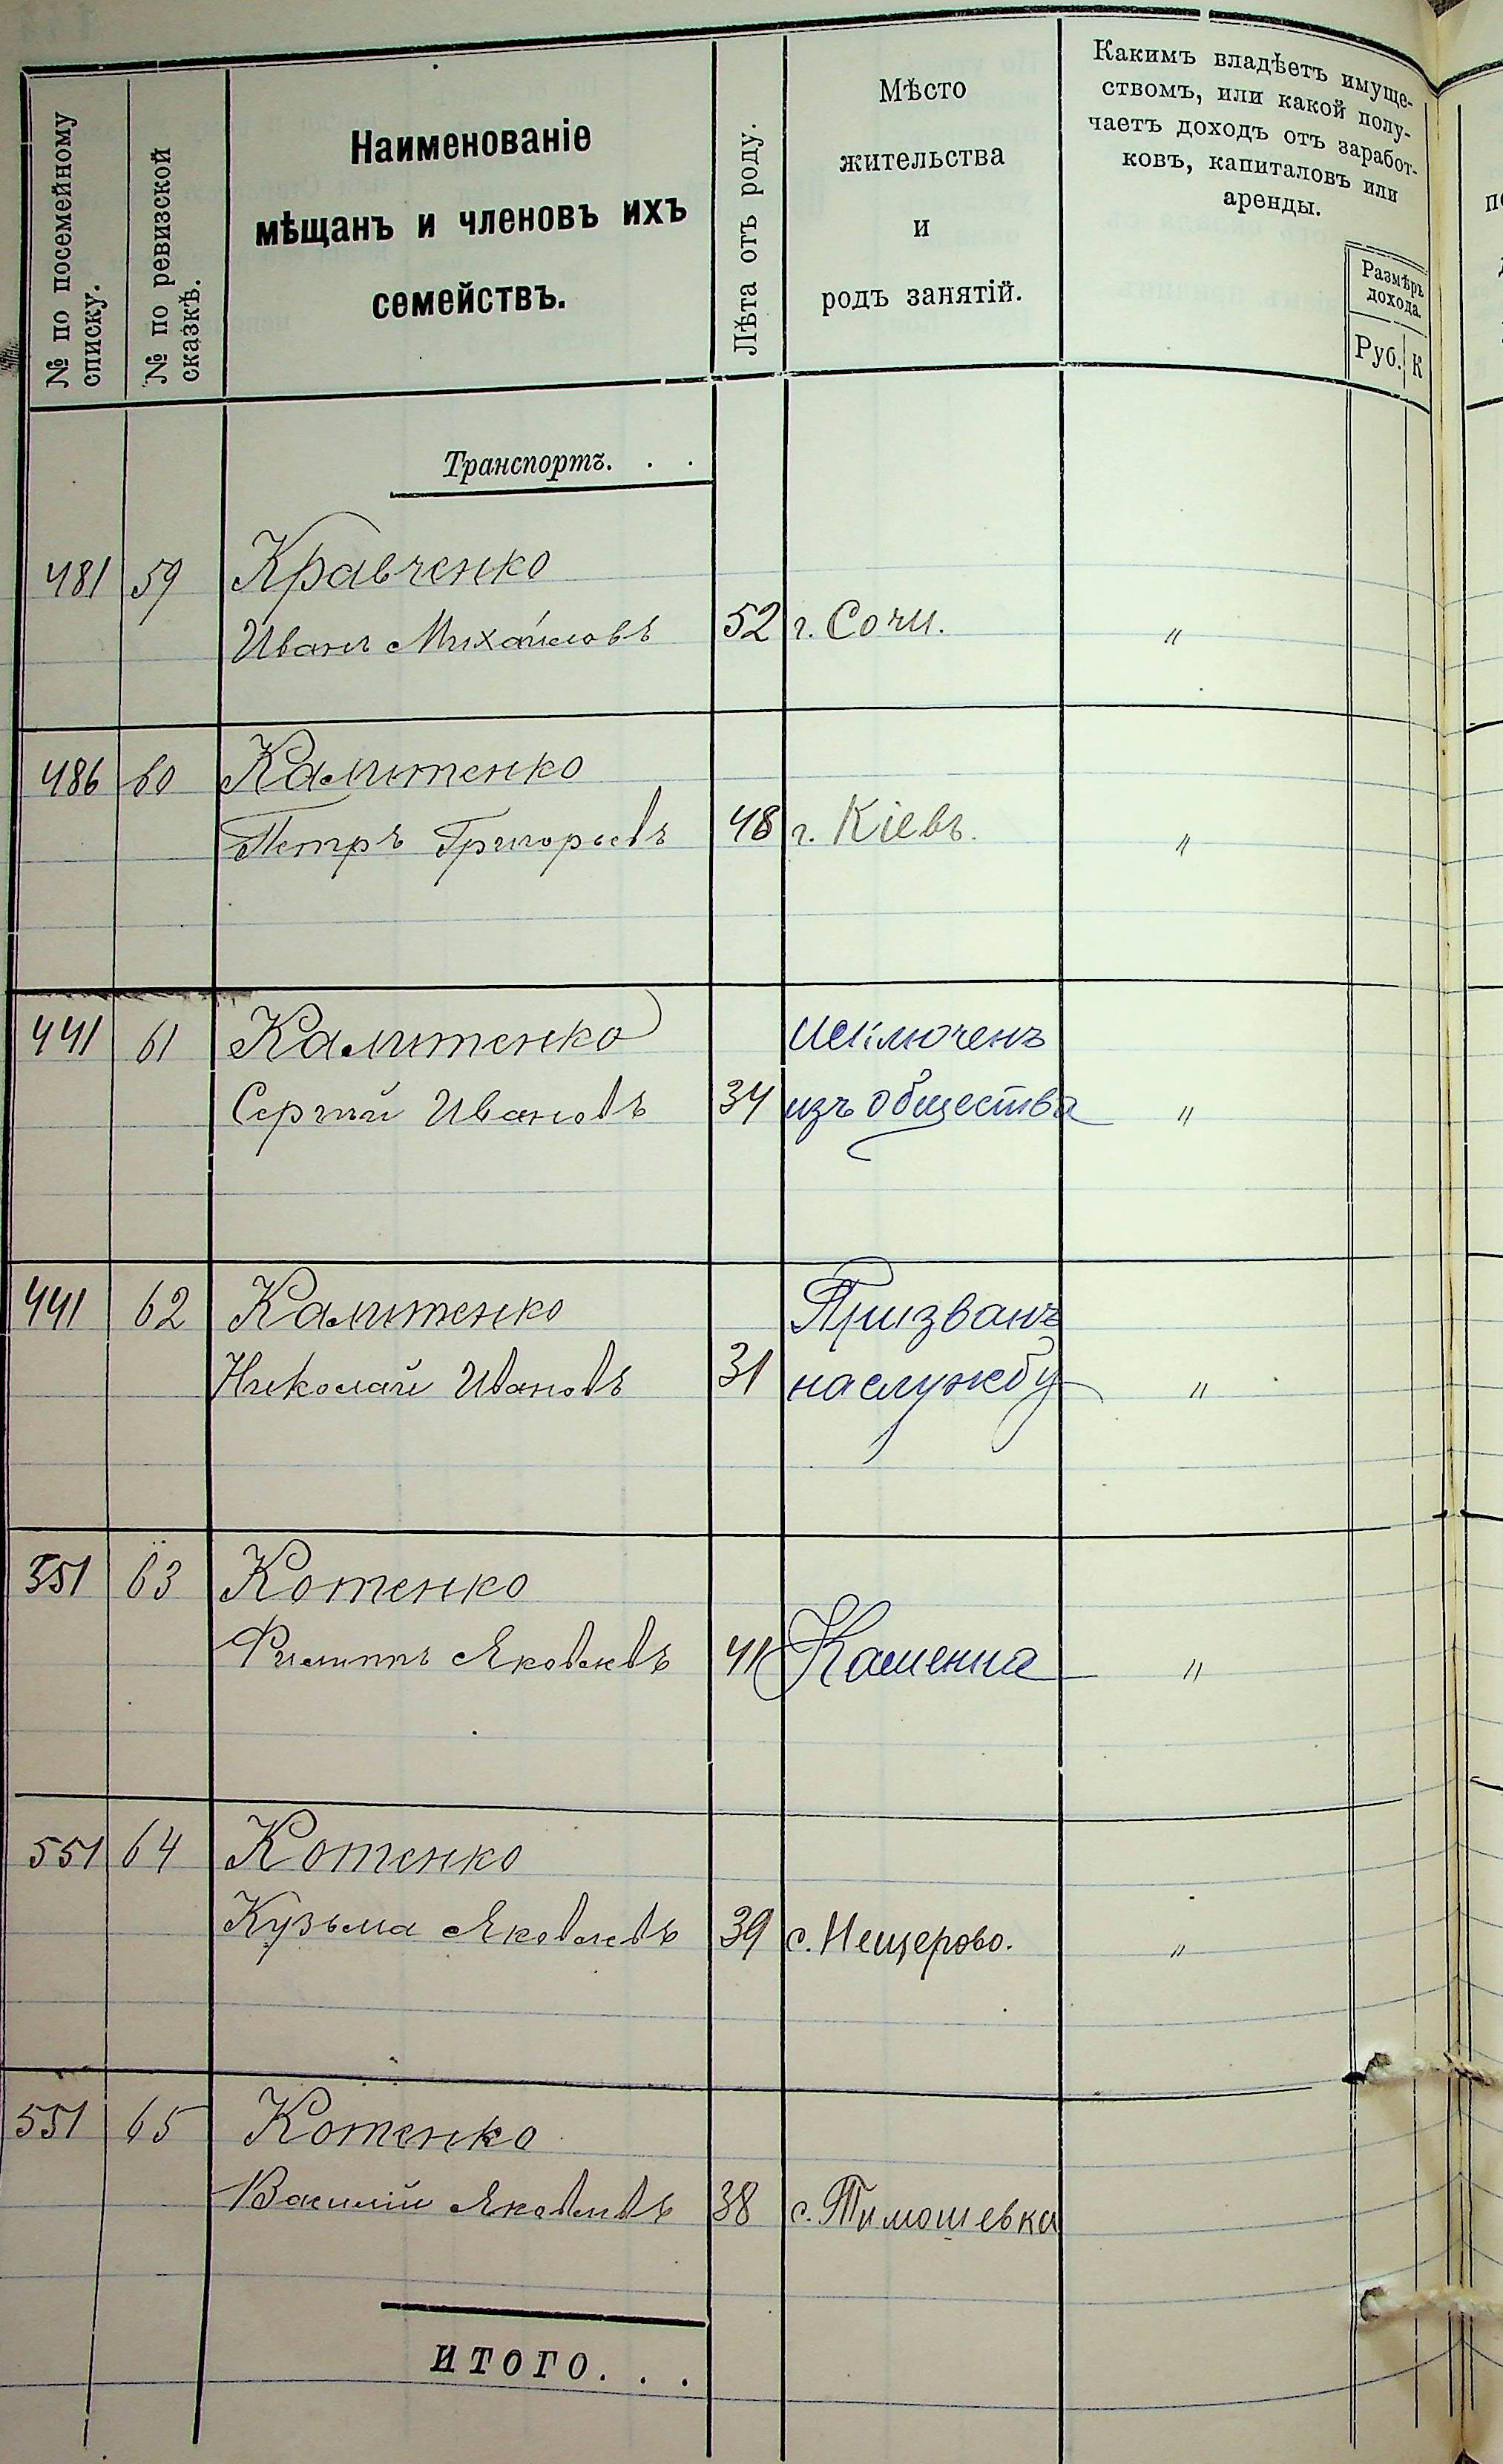 № по посемейному
списку.
№ по ревизской
сказкѣ.
Наименованіе
мѣщанъ и членовъ ихъ
семействъ.
Лѣта отъ роду.
Мѣсто
жительства
и
родъ занятій.
Какимъ владѣетъ имуще-
ствомъ, или какой полу-
чаетъ доходъ отъ заработ-
ковъ, капиталовъ или
аренды.
Размѣръ
дохода.
Руб. К
Транспортъ. . .
481 59 Кравченко
Иванъ Михайловъ 52 г. Сочи. "
486 60 Калитенко
Петръ Григорьевъ 48 г. Кіевъ. "
441 61 Калитенко исключенъ
Сергѣй Ивановъ 34 изъ общества "
441 62 Калитенко Призванъ
Николай Ивановъ 31 на службу "
351 63 Котенко
Филиппъ Яковлевъ 41 Каменка "
551 64 Котенко
Кузьма Яковлевъ 39 с. Нещерово. "
551 65 Котенко
Василій Яковлевъ 38 с. Тимошевка
ИТОГО. . .